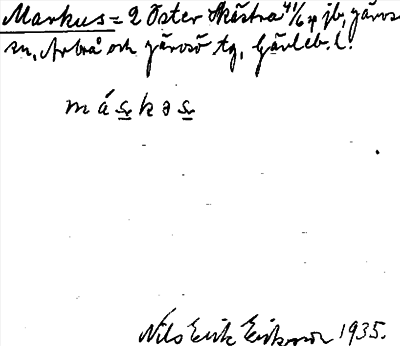 Markus = 2 Öster Skästra 41/64 jb, Järvsö
sn, Arbrå och Järvsö tg, Gävleb. l.
máskəs
Nils Erik Eriksson 1935.